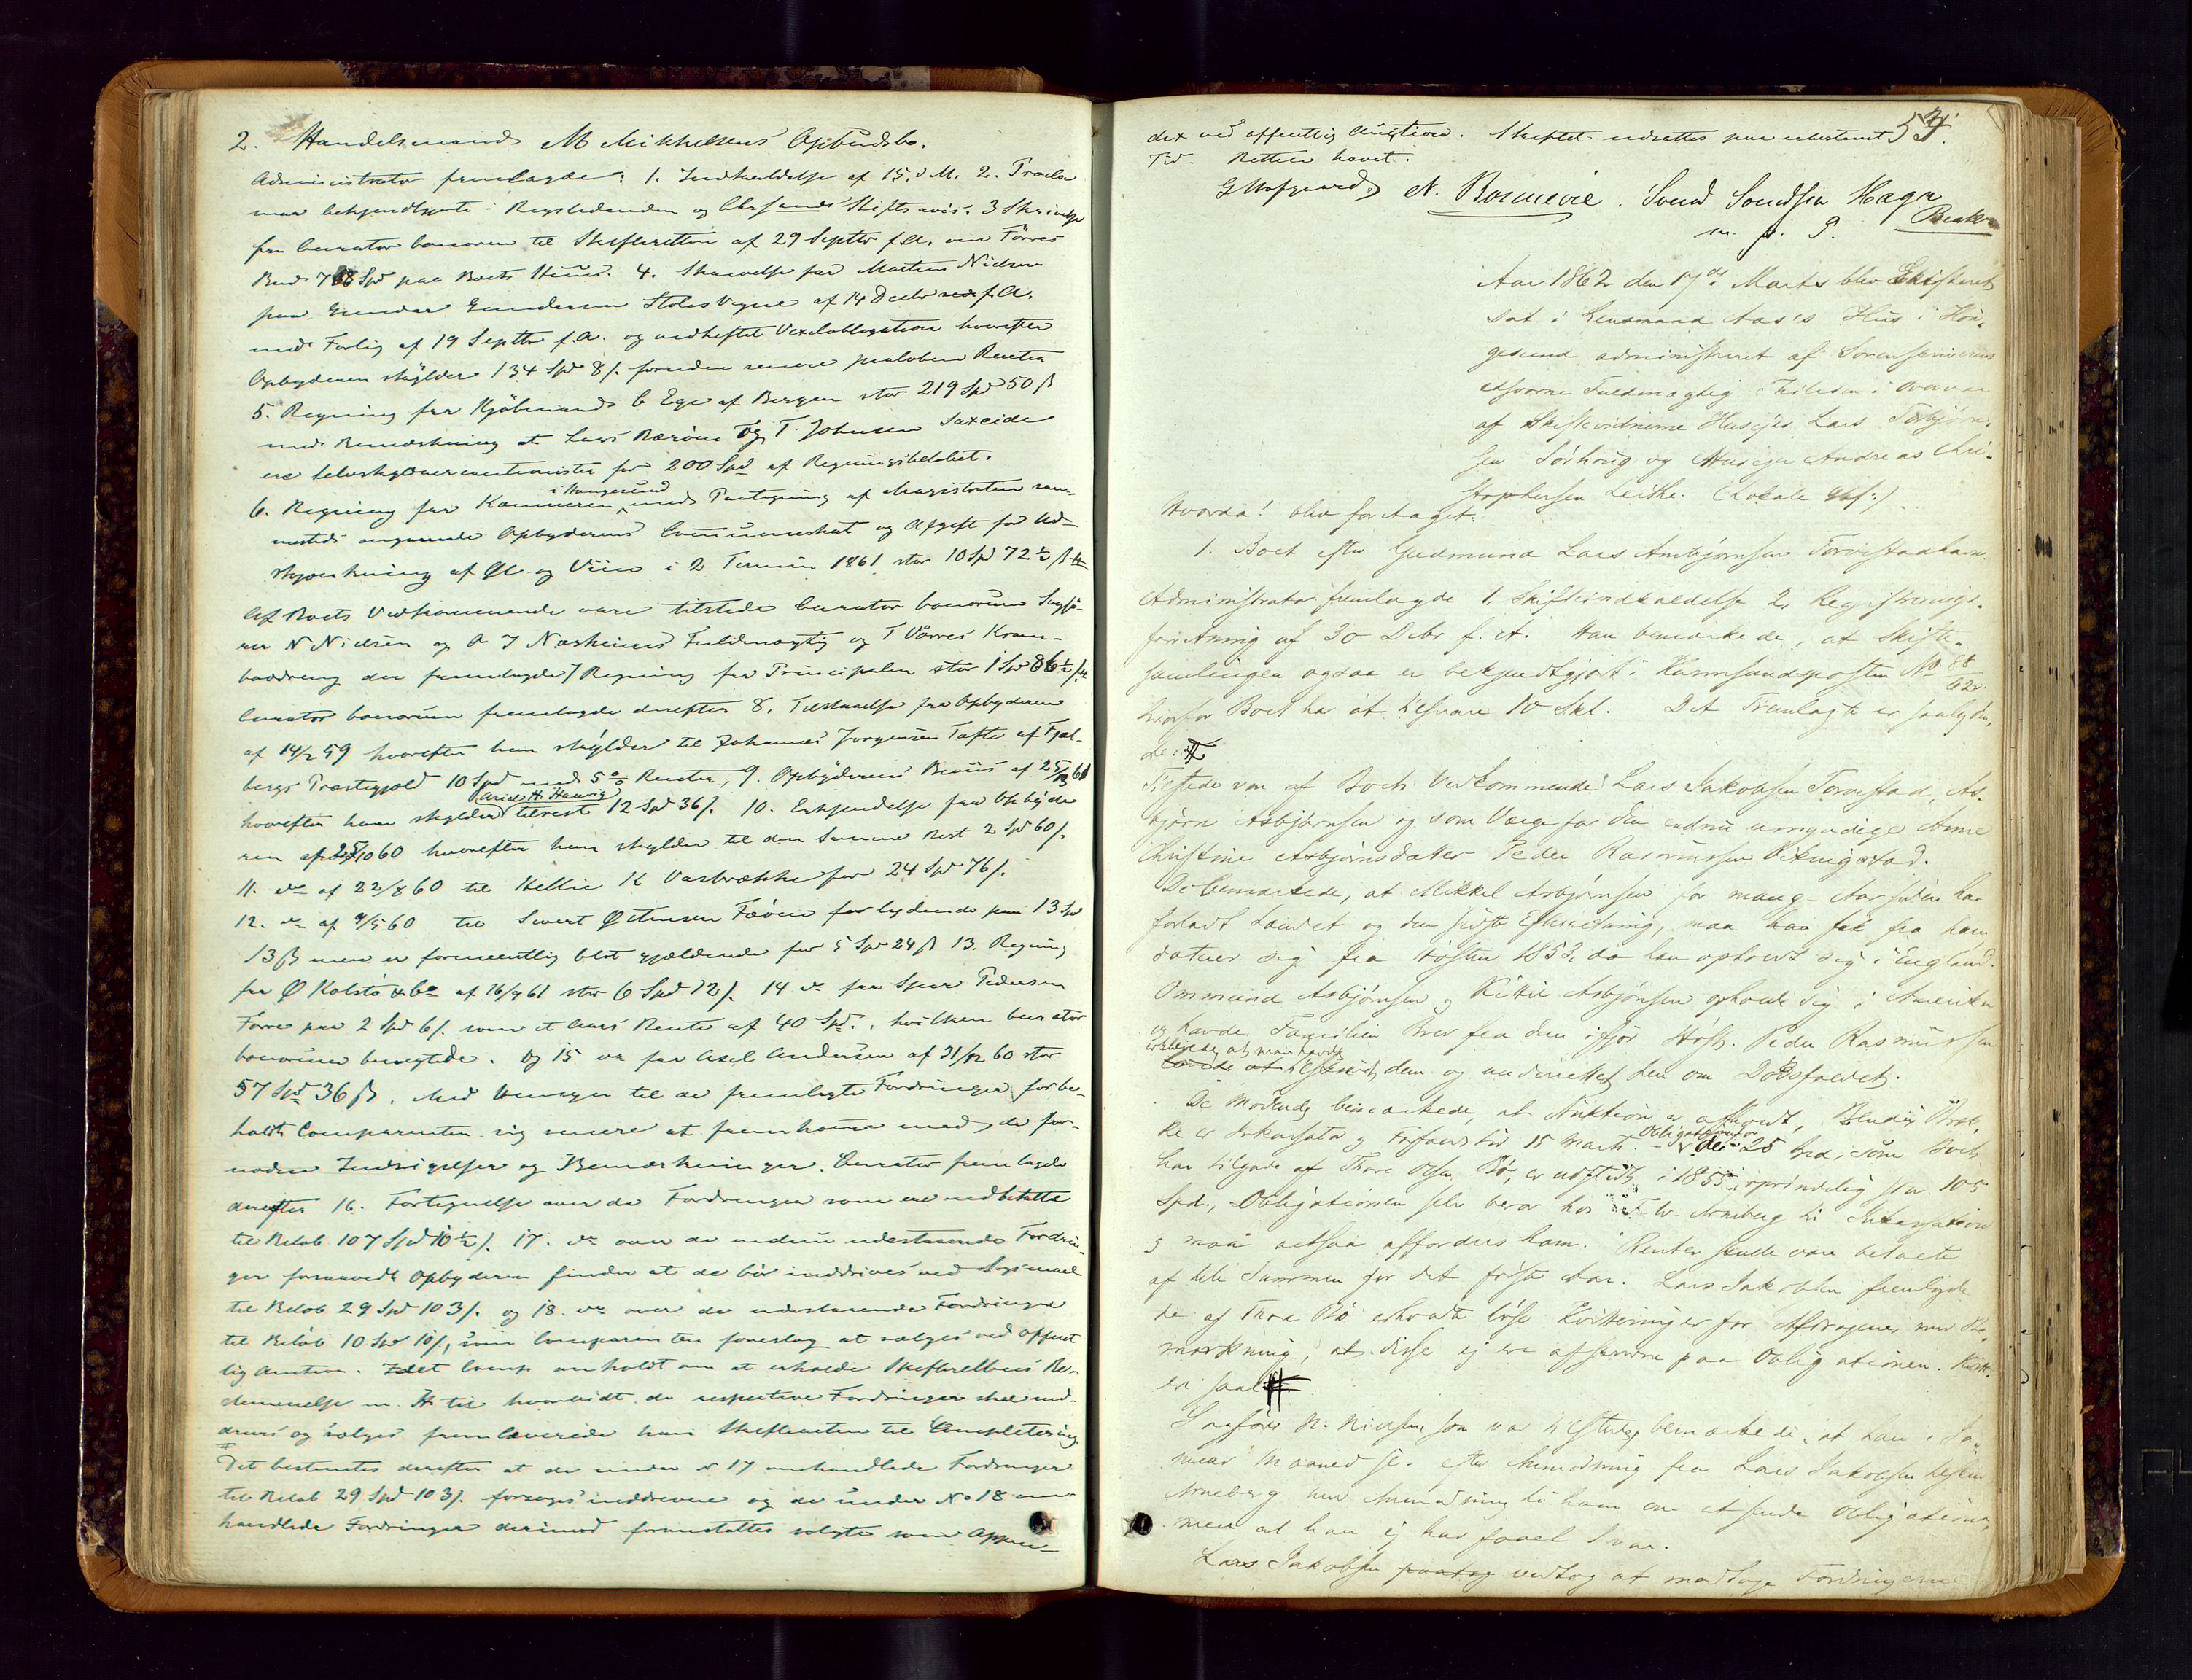 2. Handelsmand M Mikkelsens Opbudsbo.
Administrator fremlagde: 1. Indkaldelse af 15. d M. 2. Procla
ma bekjendtgjort i Rigstidenden og Chrsands Stiftsavis. 3 Skrivelse
fra curator bonorum til Skifteretten af 29 Septbr f. A. om Törres
Bud 768 Spd paa Boets Huus. 4. Skrivelse fra Morten Nielsen
paa Gunder Gundersen Stoles Vegne af 14 Decbr f. A.
med Forlig af 19 Septbr f. A. og vedheftet Vexelobligation hvorefter
Opbyderen skylder 134 Spd 8 /. foruden senere paaløbne Renter
5. Regning fra Kjöbmand C Ege af Bergen stor 219 Spd 50 ß
med Bemærkning at Lars Bærøen og T. Johnsen Saxeide
ere selvskyldnercautionister for 200 Spd af Regningsbeløbet.
6. Regning fra Kæmneren i Haugesund med Paategning af Magistraten sam-
mesteds angaaende Opbyderens Communeskat og Afgift for Ud-
skjænkning af Øl og Viin i 2 Termin 1861 stor 10 Spd 72 ½ ß
Af Boets Vedkommende vare tilstede curator bonorum Sagfö-
rer N Nielsen og O J Næsheims Fuldmægtig og T Vårres Kram-
boddreng der fremlagde 7 Regning fra Principalen stor 1 Spd 86 ½ /.
Curator bonorum fremlagde derefter 8. Tilstaaelse fra Opbyderen
af 14/2 59 hvorefter han skylder til Johannes Jørgensen Tofte af Fjel-
bergs Præstegjeld 10 Spd med 5 % Renter, 9. Opbyderens Beviis af 25/3 61
hvorefter han skylder Ariel H. Hauvig tilrest 12 Spd 36 /. 10. Erkjendelse fra Opbyde
ren af 25/10 60 hvorefter han skylder til den Samme Rest 2 Spd 60 /.
11. do af 22/8 60 til Hellie K Vasbrække for 24 Spd 76 /.
12. do af 9/5 60 til Sivert Østensen Fæøen lydende paa 13 Spd
13 ß men er formeentlig blot gjældende for 5 Spd 24 ß 13. Regning
fra Ø Kolstø & Co af 16/4 61 stor 6 Spd 12 /. 14 do fra Sjur Pedersen
Förre paa 2 Spd 6 /. som et Aars Rente af 40 Spd., hvilken curator
bonorum benegtede. Og 15 do fra Axel Andersen af 31/12 60 stor
57 Spd 36 ß. Med Hensyn til de fremlagte Fordringer forbe-
holdt Comparenten sig senere at fremkomme med de for-
nødne Indsigelser og Bemærkninger. Curator fremlagde
derefter 16. Fortegnelse over de Fordringer som ere indbetalte
til Beløb 107 Spd 10 ½ /. 17. do over de endnu udestaaende Fordrin-
ger forsaavidt Opbyderen finder at de bör inddrives ved Søgsmaal
til Beløb 29 Spd 103 /. og 18. do over de udestaaende Fordringer
til Beløb 10 Spd 10 /., som Comparenten foreslog at sælges ved offent
lig Auction. Idet Comp. anholdt om at erholde Skifterettens Be-
stemmelse m. H. til hvorvidt de respective Fordringer skal ind-
drives og sælges fremleverede han Skifteacten til Completering
Det bestemtes derefter at de under No 17 omhandlede Fordringer
til Beløb 29 Spd 103 /. forsøges inddrevne og de under No 18 om-
handlede Fordringer derimod foranstaltes solgte som
det ved offentlig Auction. Skiftet udsattes paa ubestemt
Tid. Retten hævet.
53
G Hofgaard N. Svend Svendsen Hagn
m. p. P.
Aar 1862 den 17de Marts blev Skifteret
sat i Lensmand Aas's Huus i Hau-
gesund administreret af Sorenskriverens
edsvorne Fuldmægtig i Overvær
af Skiftevidnerne Husejer Lars Torbjørn-
sen Sørhoug og Husejer Andreas Chri-
stophersen Leiske. (Lokale
Hvorda! blev foretaget:
1. Boet efter Gudmund Lars Asbjørnsen Torvestadhavn.
Administrator fremlagde 1, Skifteindkaldelse 2, Registrerings-
foretning af 30 Decbr f. A. Han bemærkede, at Skifte-
samlingen ogsaa er bekjendtgjort i Karmsundsposten No 88/62
hvorfor Boet har at tilsvare 10 Skl. Det Fremlagte er saalyden-
de:
Tilstede var af Boets Vedkommende Lars Jakobsen Torvestad, As-
bjørn Asbjørnsen og som Værge for den endnu umyndige Anne
Christine Asbjørnsdatter Peder Rasmussen Vikingstad.
De bemærkede, at Mikkel Asbjørnsen for mange Aar siden har
forladt Landet og den sidste Efterretning, man har fra ham
daterer sig fra Høsten 1853, da han opholdt sig i England.
Ommund Asbjørnsen og Kittil Asbjørnsen opholde sig i Amerika
og havde Familien Brev fra dem ifjor Høst. Peder Rasmussen
tilskrevet dem og underrettet dem om Dødsfaldet.
De Mødende bemærkede, at Auktion er afholdt, Endvig
ke er Inkassator og Forfaldstid 15 Marts. Obligationen de 25 Spd, som Boet
har tilgode af Thore Olsen Bø, er udstedt i 1855, oprindelig stor 105
Spd., Obligationen selv beror hos Arneberg til Inkassation
og maa altsaa affordres ham. Renter skulle være betalte
af hele Summen for det første Aar. Lars Jakobsen fremlagde
de af Thore Bø erholdte løse Kvitteringer for Afdragene med Be-
mærkning, at disse ej ere afskrevne paa Obligationen. Kvitt.
er saal
Sagfører N. Nielsen som var tilstede bemærkede, at han i Ja-
nuar Maaned sl. efter Anmodning fra Lars Jakobsen tilskrev
Arneberg med Anmodning til ham om at sende Obligationen,
men at han ej har faaet Svar.
Lars Jakobsen vedtog at modtage Fordringerne